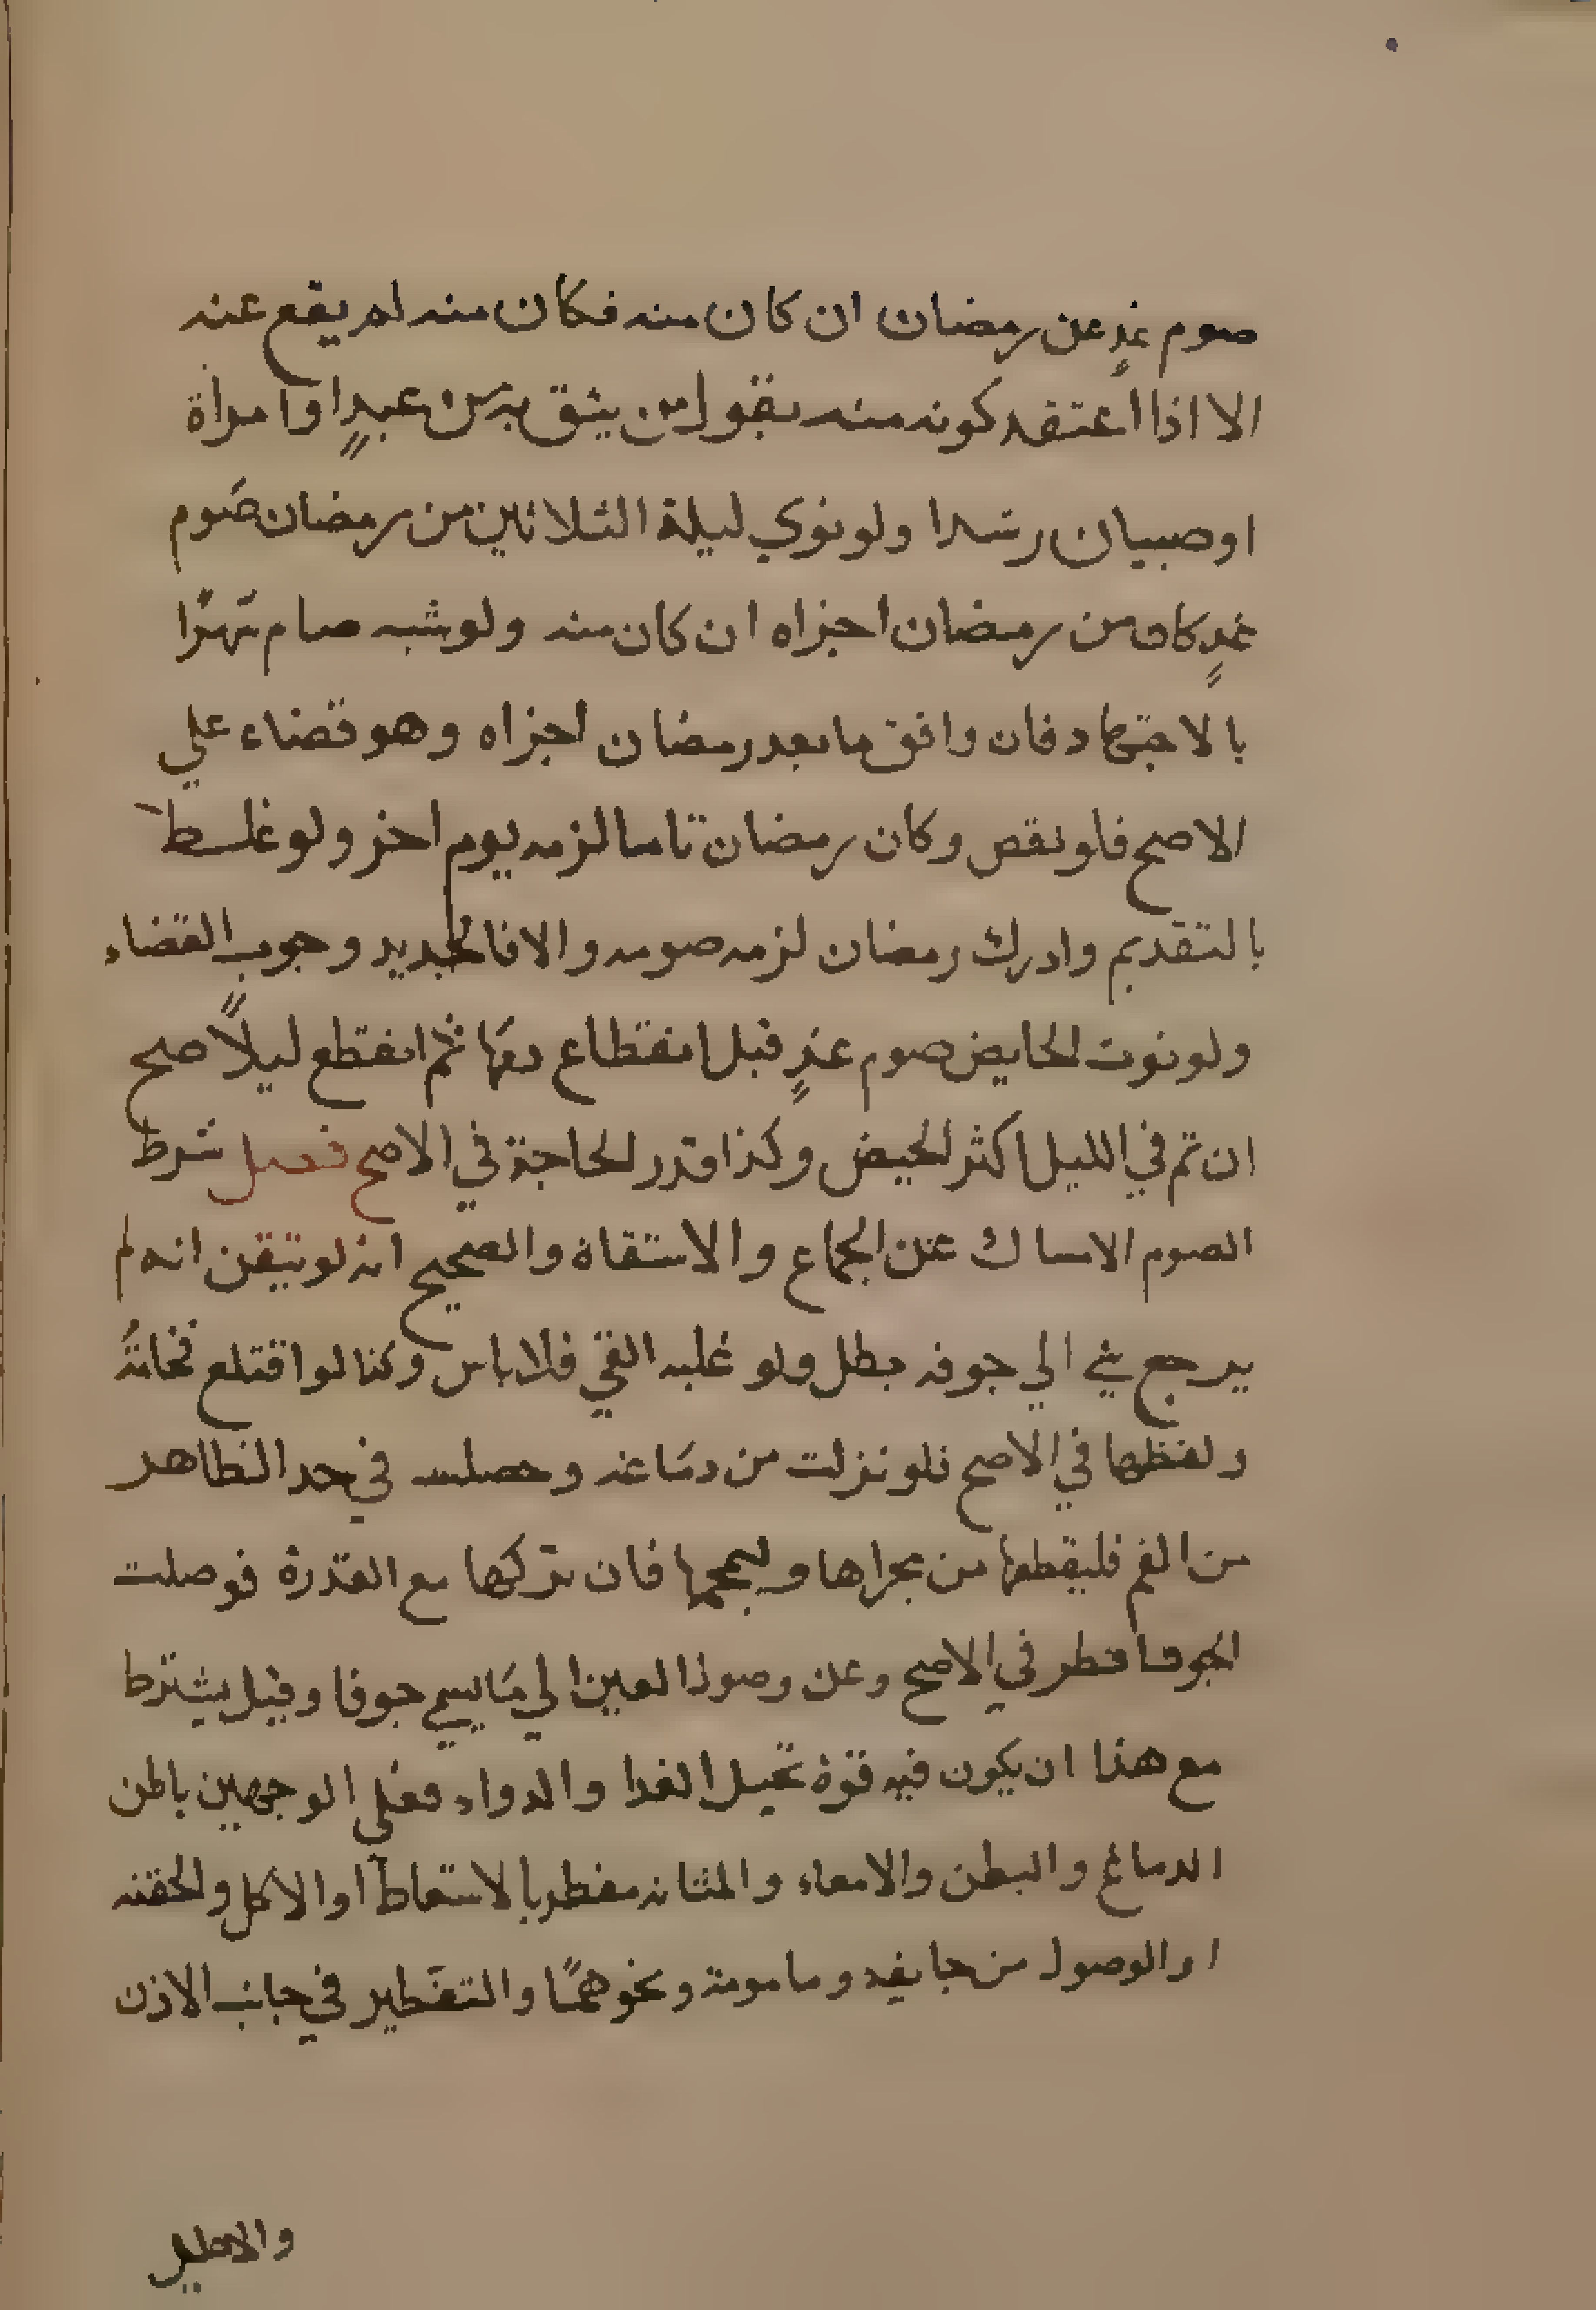 صوم غدٍ عن رمضان ان كان منه فكان منه لم يقع عنه
الا اذا اعتقد كونه منه بقول من يثق به من عبدٍ او امراة
او صبيان رشدا ولو نوي ليلة الثلاثين من رمضان صوم
غدٍ كان من رمضان اجزاه ان كان منه ولو شبه صام شهرًا
بالاجتهاد فان وافق ما بعد رمضان اجزاه وهو قضاء علي
الاصح فلو نقص وكان رمضان تاما لزمه يوم اخر ولو غلط
بالتقديم وادرك رمضان لزمه صومه والا فالجديد وجوب القضاء
ولو نوت الحايض صوم غدٍ قبل انقطاع دمها ثم انقطع ليلاً صح
ان تم في الليل اكثر الحيض وكذا قدر الحاجة في الاصح فصل شرط
الصوم الامساك عن الجماع والاستقاة والصحيح انه لو تيقن انه لم
يرجع شي الي جوفه بطل ولو غلبه القي فلا باس وكذا لو اقتلع نخامةً
ولفظها في الاصح فلو نزلت من دماغه وحصلت في حد الظاهر
من الفم فليقطعها من مجراها وليمجها فان تركها مع القدرة فوصلت
الجوف افطر في الاصح وعن وصول العين الي ما يسمي جوفا وقيل يشترط
مع هذا ان يكون فيه قوة تحيل الغدا والدواء فعلي الوجهين باطن
الدماغ والبطن والامعاء والمثانه مفطر بالاستعاط او الاكل والحقنه
او الوصول من جايفه ومامومة ونحوهمًا والتقطير في جانب الاذن
والاحليل